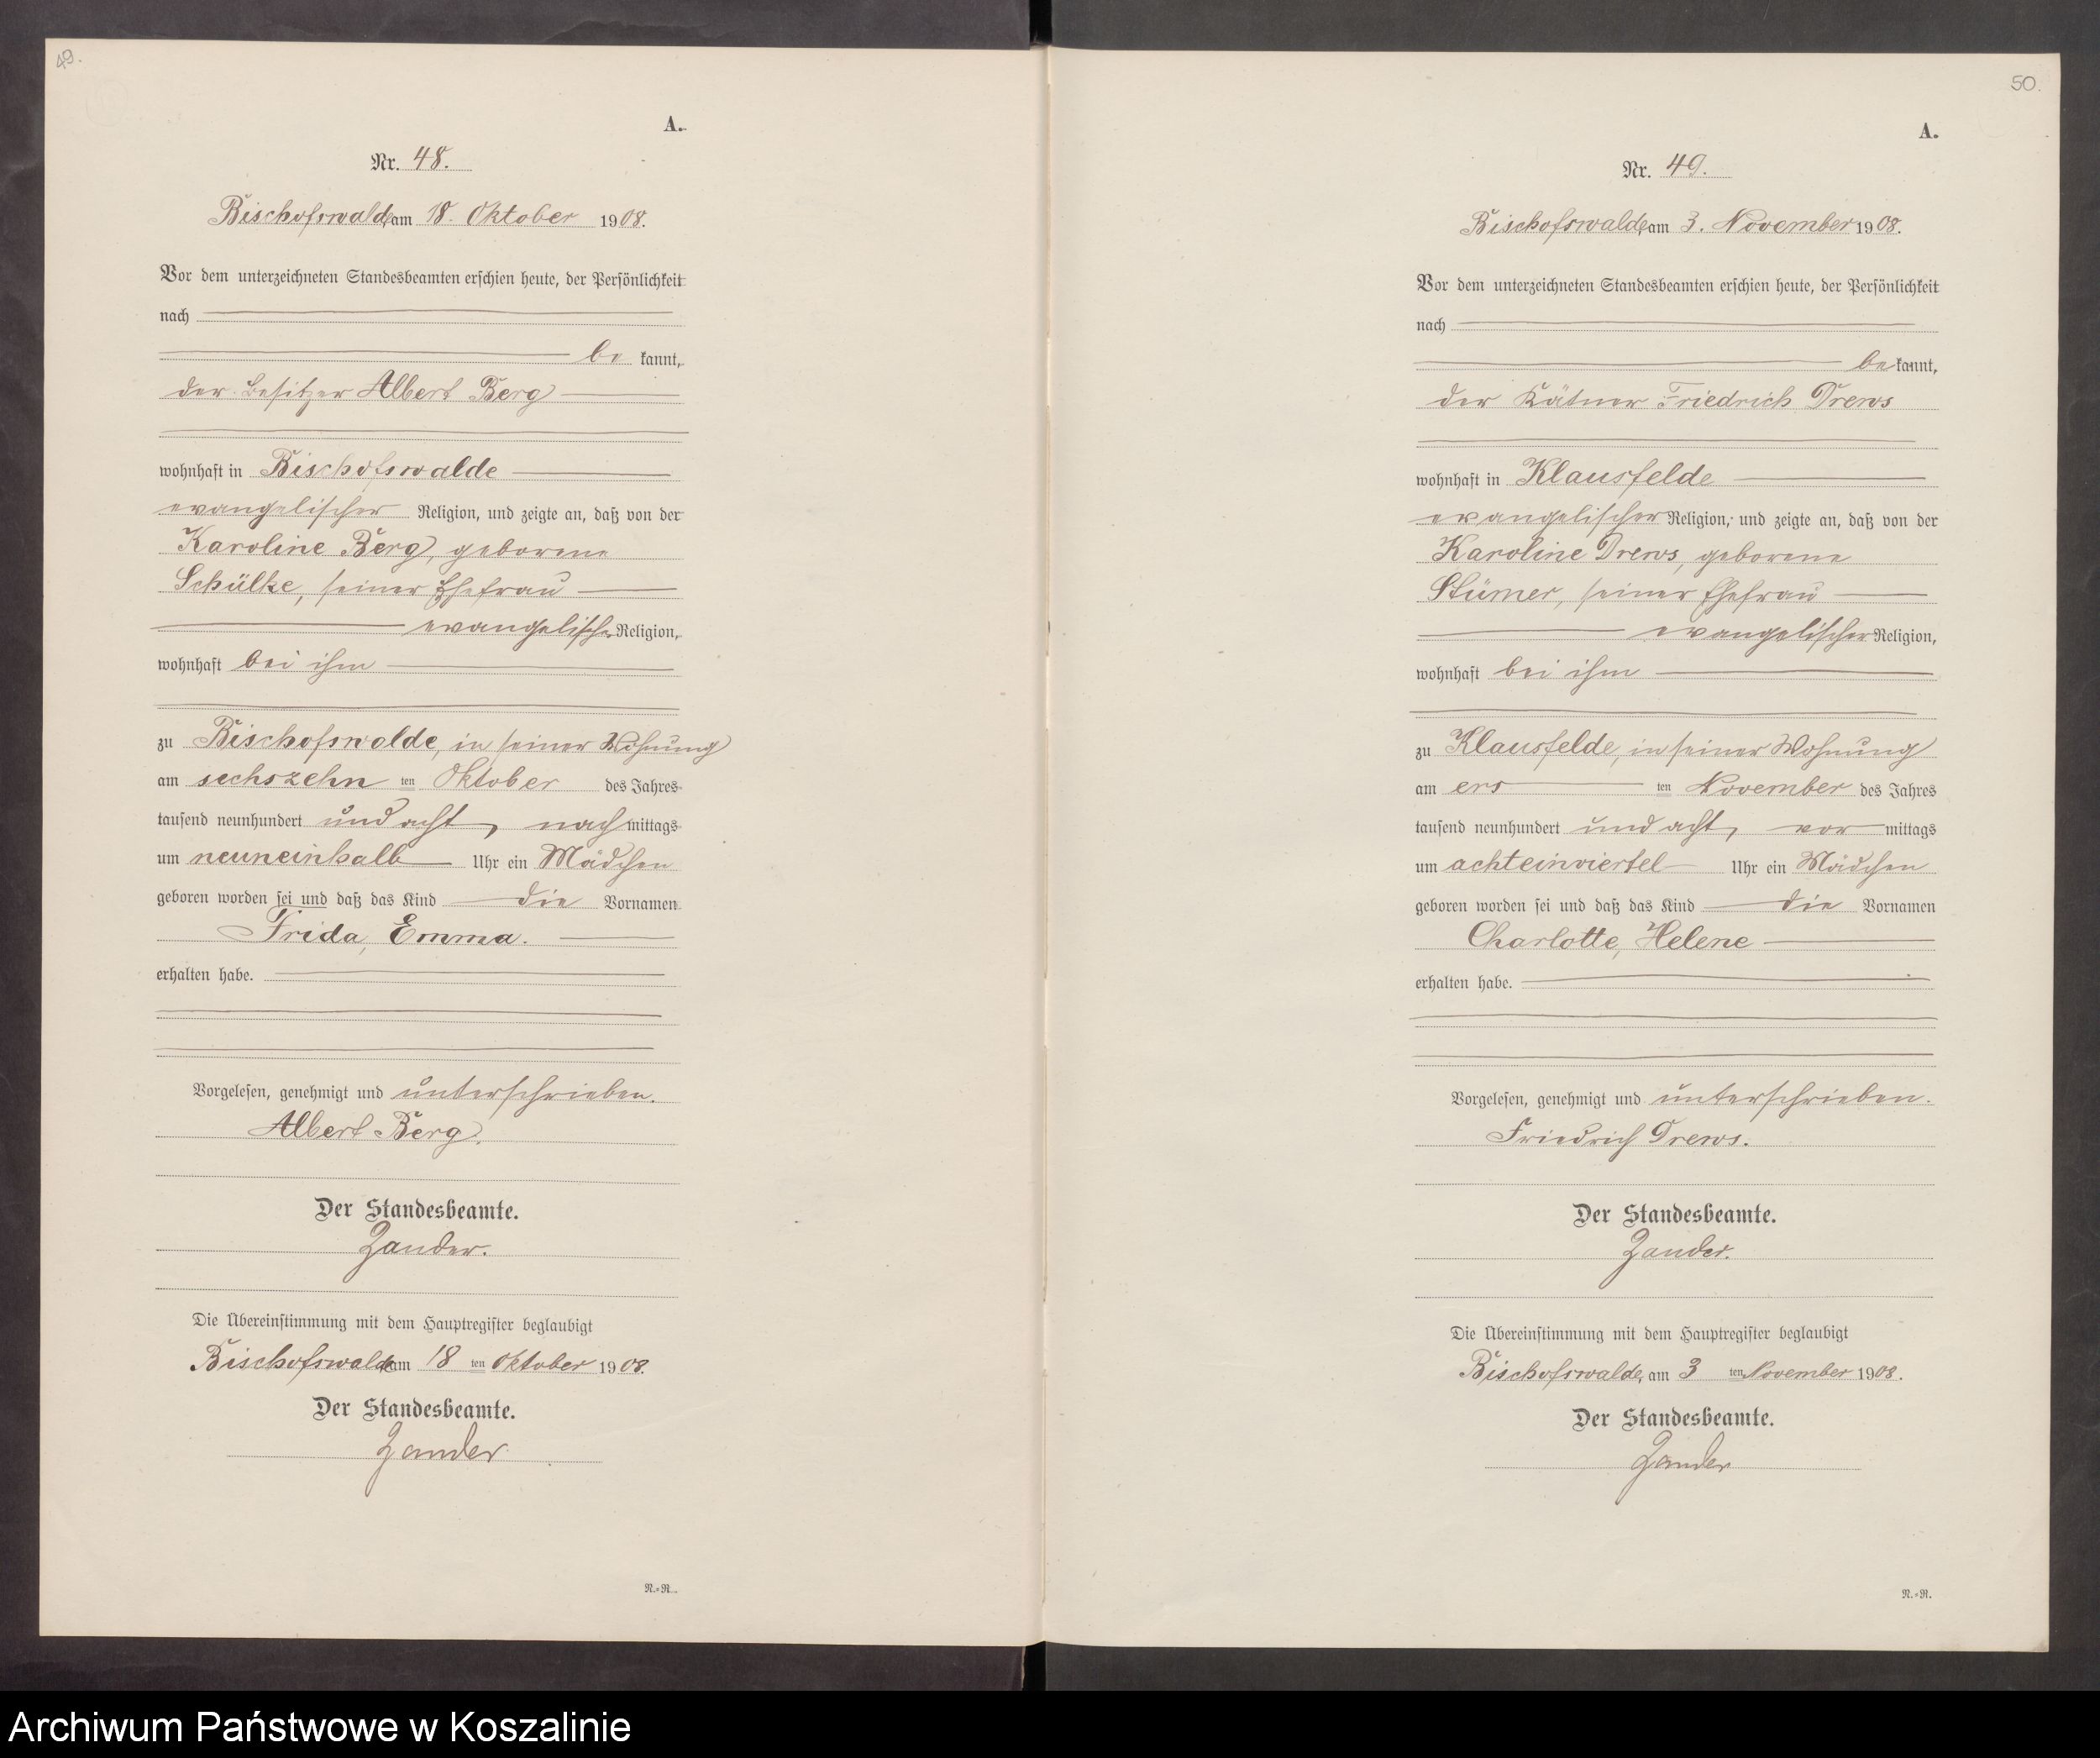 49.
A.
Nr. 48.
Bischofswalde, am 18. Oktober 1908.
Vor dem unterzeichneten Standesbeamten erschien heute, der Persönlichkeit
nach
be kannt,
der Besitzer Albert Berg
wohnhaft in Bischofswalde
evangelischer Religion, und zeigte an, daß von der
Karoline Berg, geborene
Schülke, seiner Ehefrau
evangelischer Religion,
wohnhaft bei ihm
zu Bischofswalde, in seiner Wohnung
am sechszehn ten Oktober des Jahres
tausend neunhundert und acht, nach mittags
um neuneinhalb Uhr ein Mädchen
geboren worden sei und daß das Kind die Vornamen
Frida, Emma.
erhalten habe.
Vorgelesen, genehmigt und unterschrieben.
Albert Berg.
Der Standesbeamte.
Zander.
Die Übereinstimmung mit dem Hauptregister beglaubigt
Bischofswalde am 18 ten Oktober 1908.
Der Standesbeamte.
Zander
N.=R.
50.
A.
Nr. 49.
Bischofswalde, am 3. November 1908.
Vor dem unterzeichneten Standesbeamten erschien heute, der Persönlichkeit
nach
be kannt,
der Kätner Friedrich Drews
wohnhaft in Klausfelde
evangelischer Religion, und zeigte an, daß von der
Karoline Drews, geborene
Stümer, seiner Ehefrau
evangelischer Religion,
wohnhaft bei ihm
zu Klausfelde, in seiner Wohnung
am ers ten November des Jahres
tausend neunhundert und acht, vor mittags
um achteinviertel Uhr ein Mädchen
geboren worden sei und daß das Kind die Vornamen
Charlotte, Helene
erhalten habe.
Vorgelesen, genehmigt und unterschrieben.
Friedrich Drews.
Der Standesbeamte.
Zander.
Die Übereinstimmung mit dem Hauptregister beglaubigt
Bischofswalde, am 3 ten November 1908.
Der Standesbeamte.
Zander
N.=R.
Archiwum Państwowe w Koszalinie